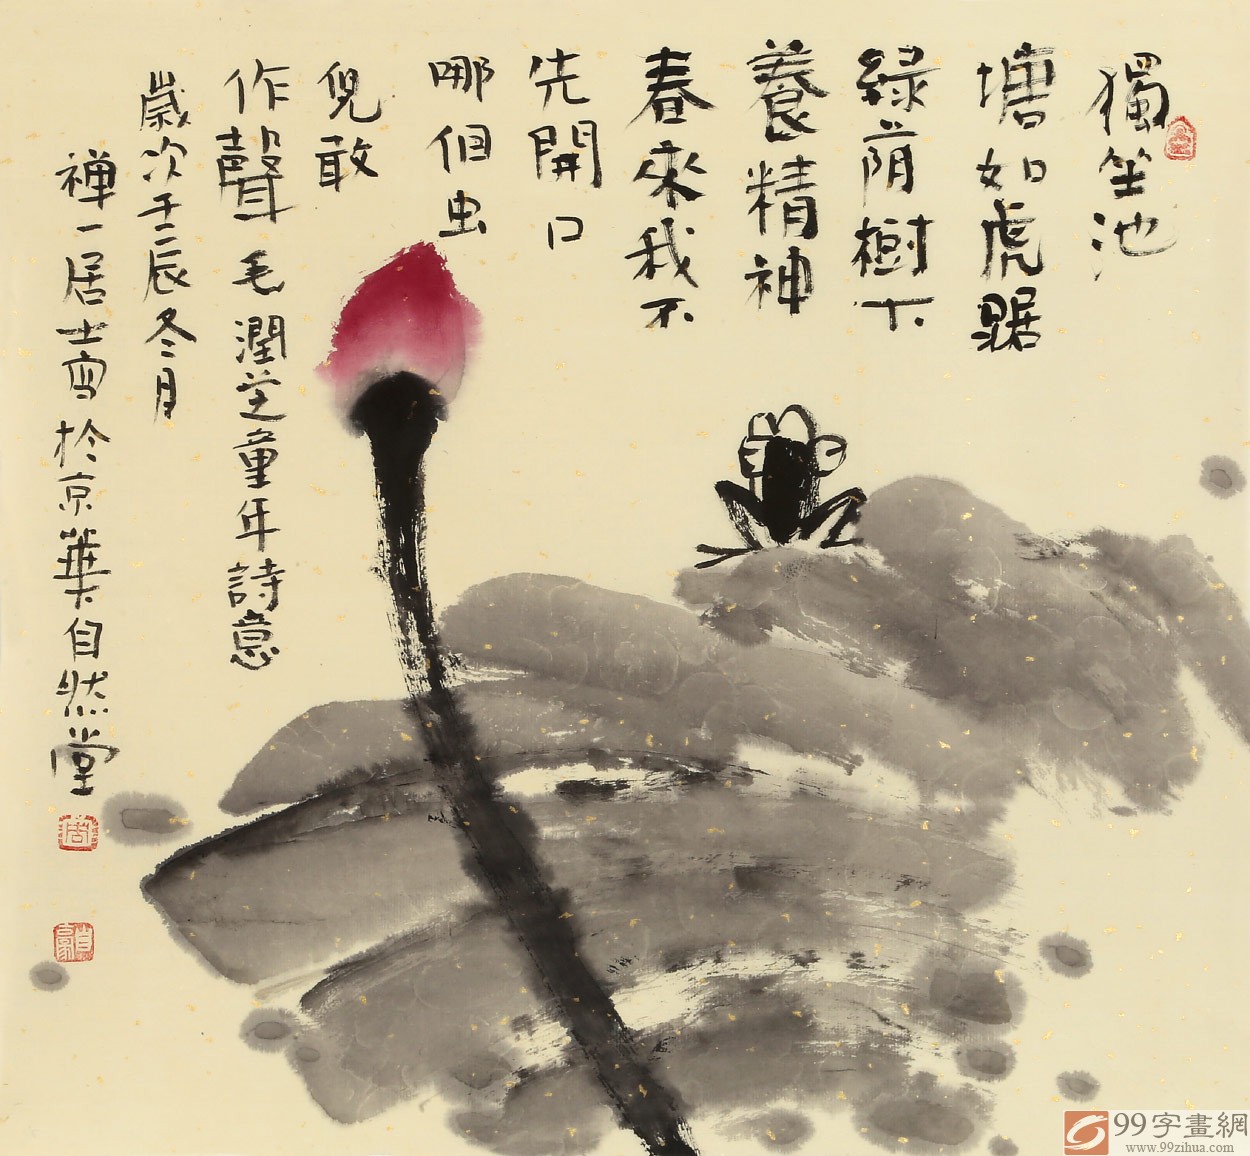 獨坐池
塘如虎踞
綠荫樹下
養精神
春來我不
先開口
哪個虫
兒敢
作聲 毛潤芝童年詩意
歲次壬辰冬月
禅一居士寫於京華自然堂
99字畫網
www.99zihua.com